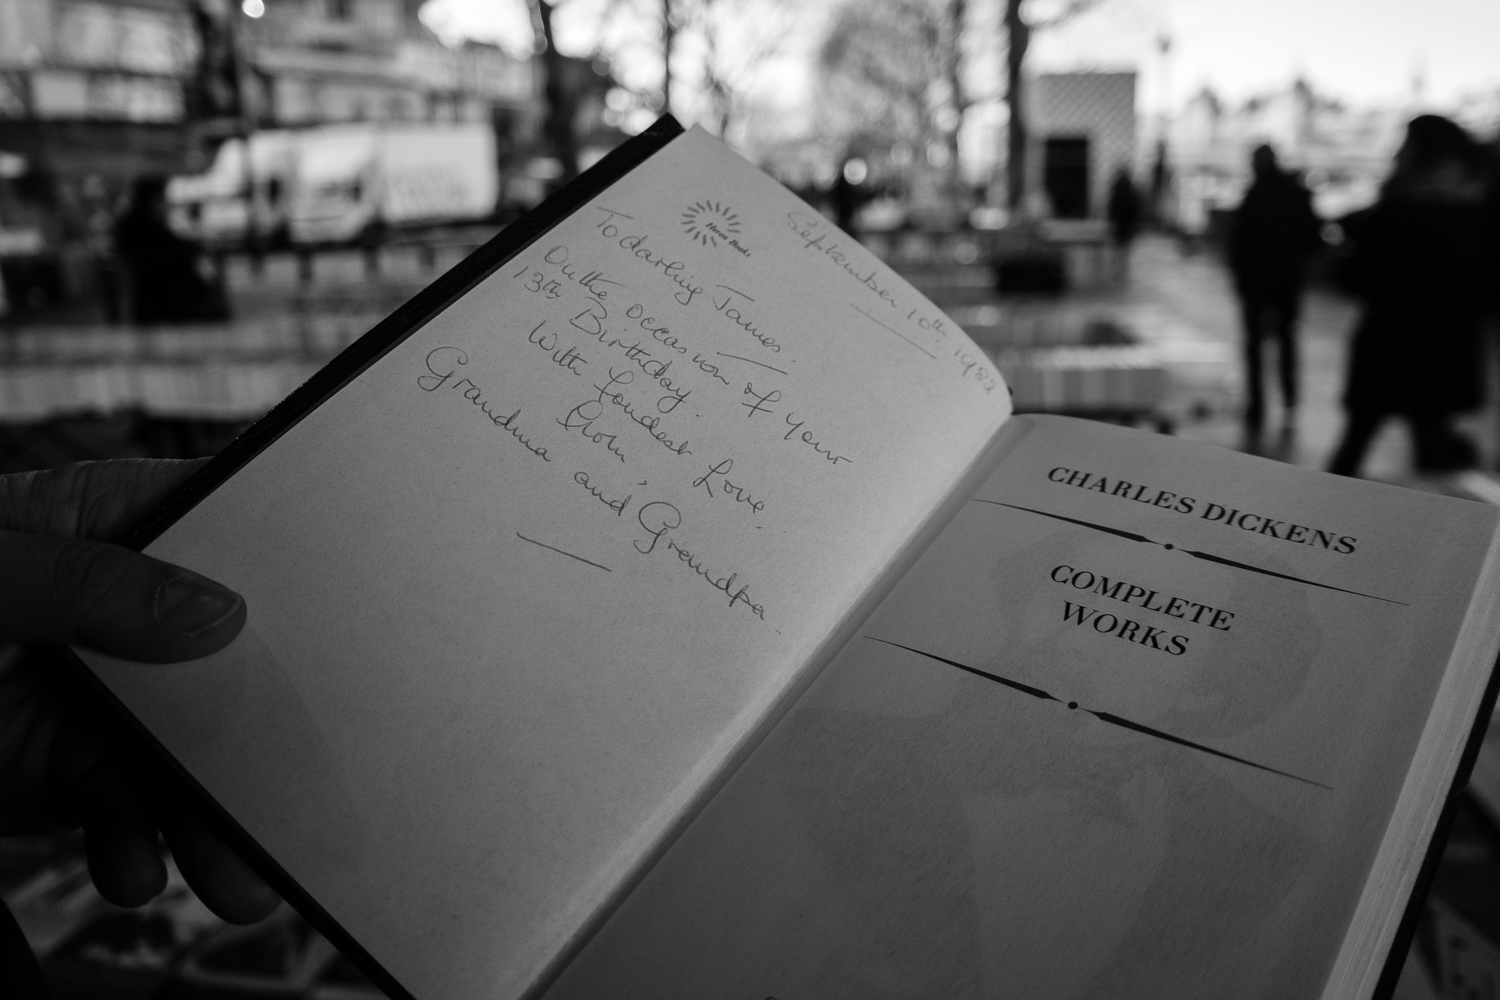 Heron Books
September 10th. 1982
To darling James.
On the occasion of your
13th Birthday.
With fondest Love,
from,
Grandma and Grandpa.
CHARLES DICKENS
COMPLETE
WORKS